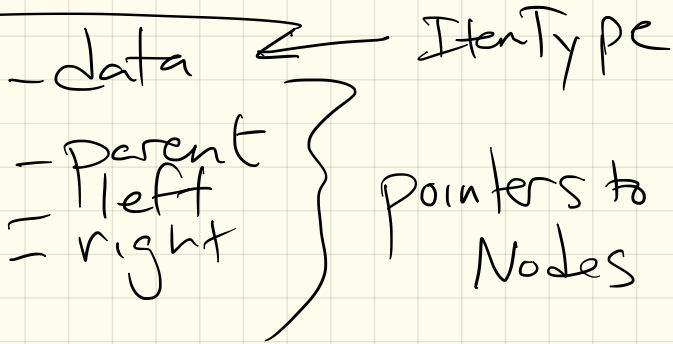 - data ← ItemType
- parent
- left
- right
pointers to
Nodes